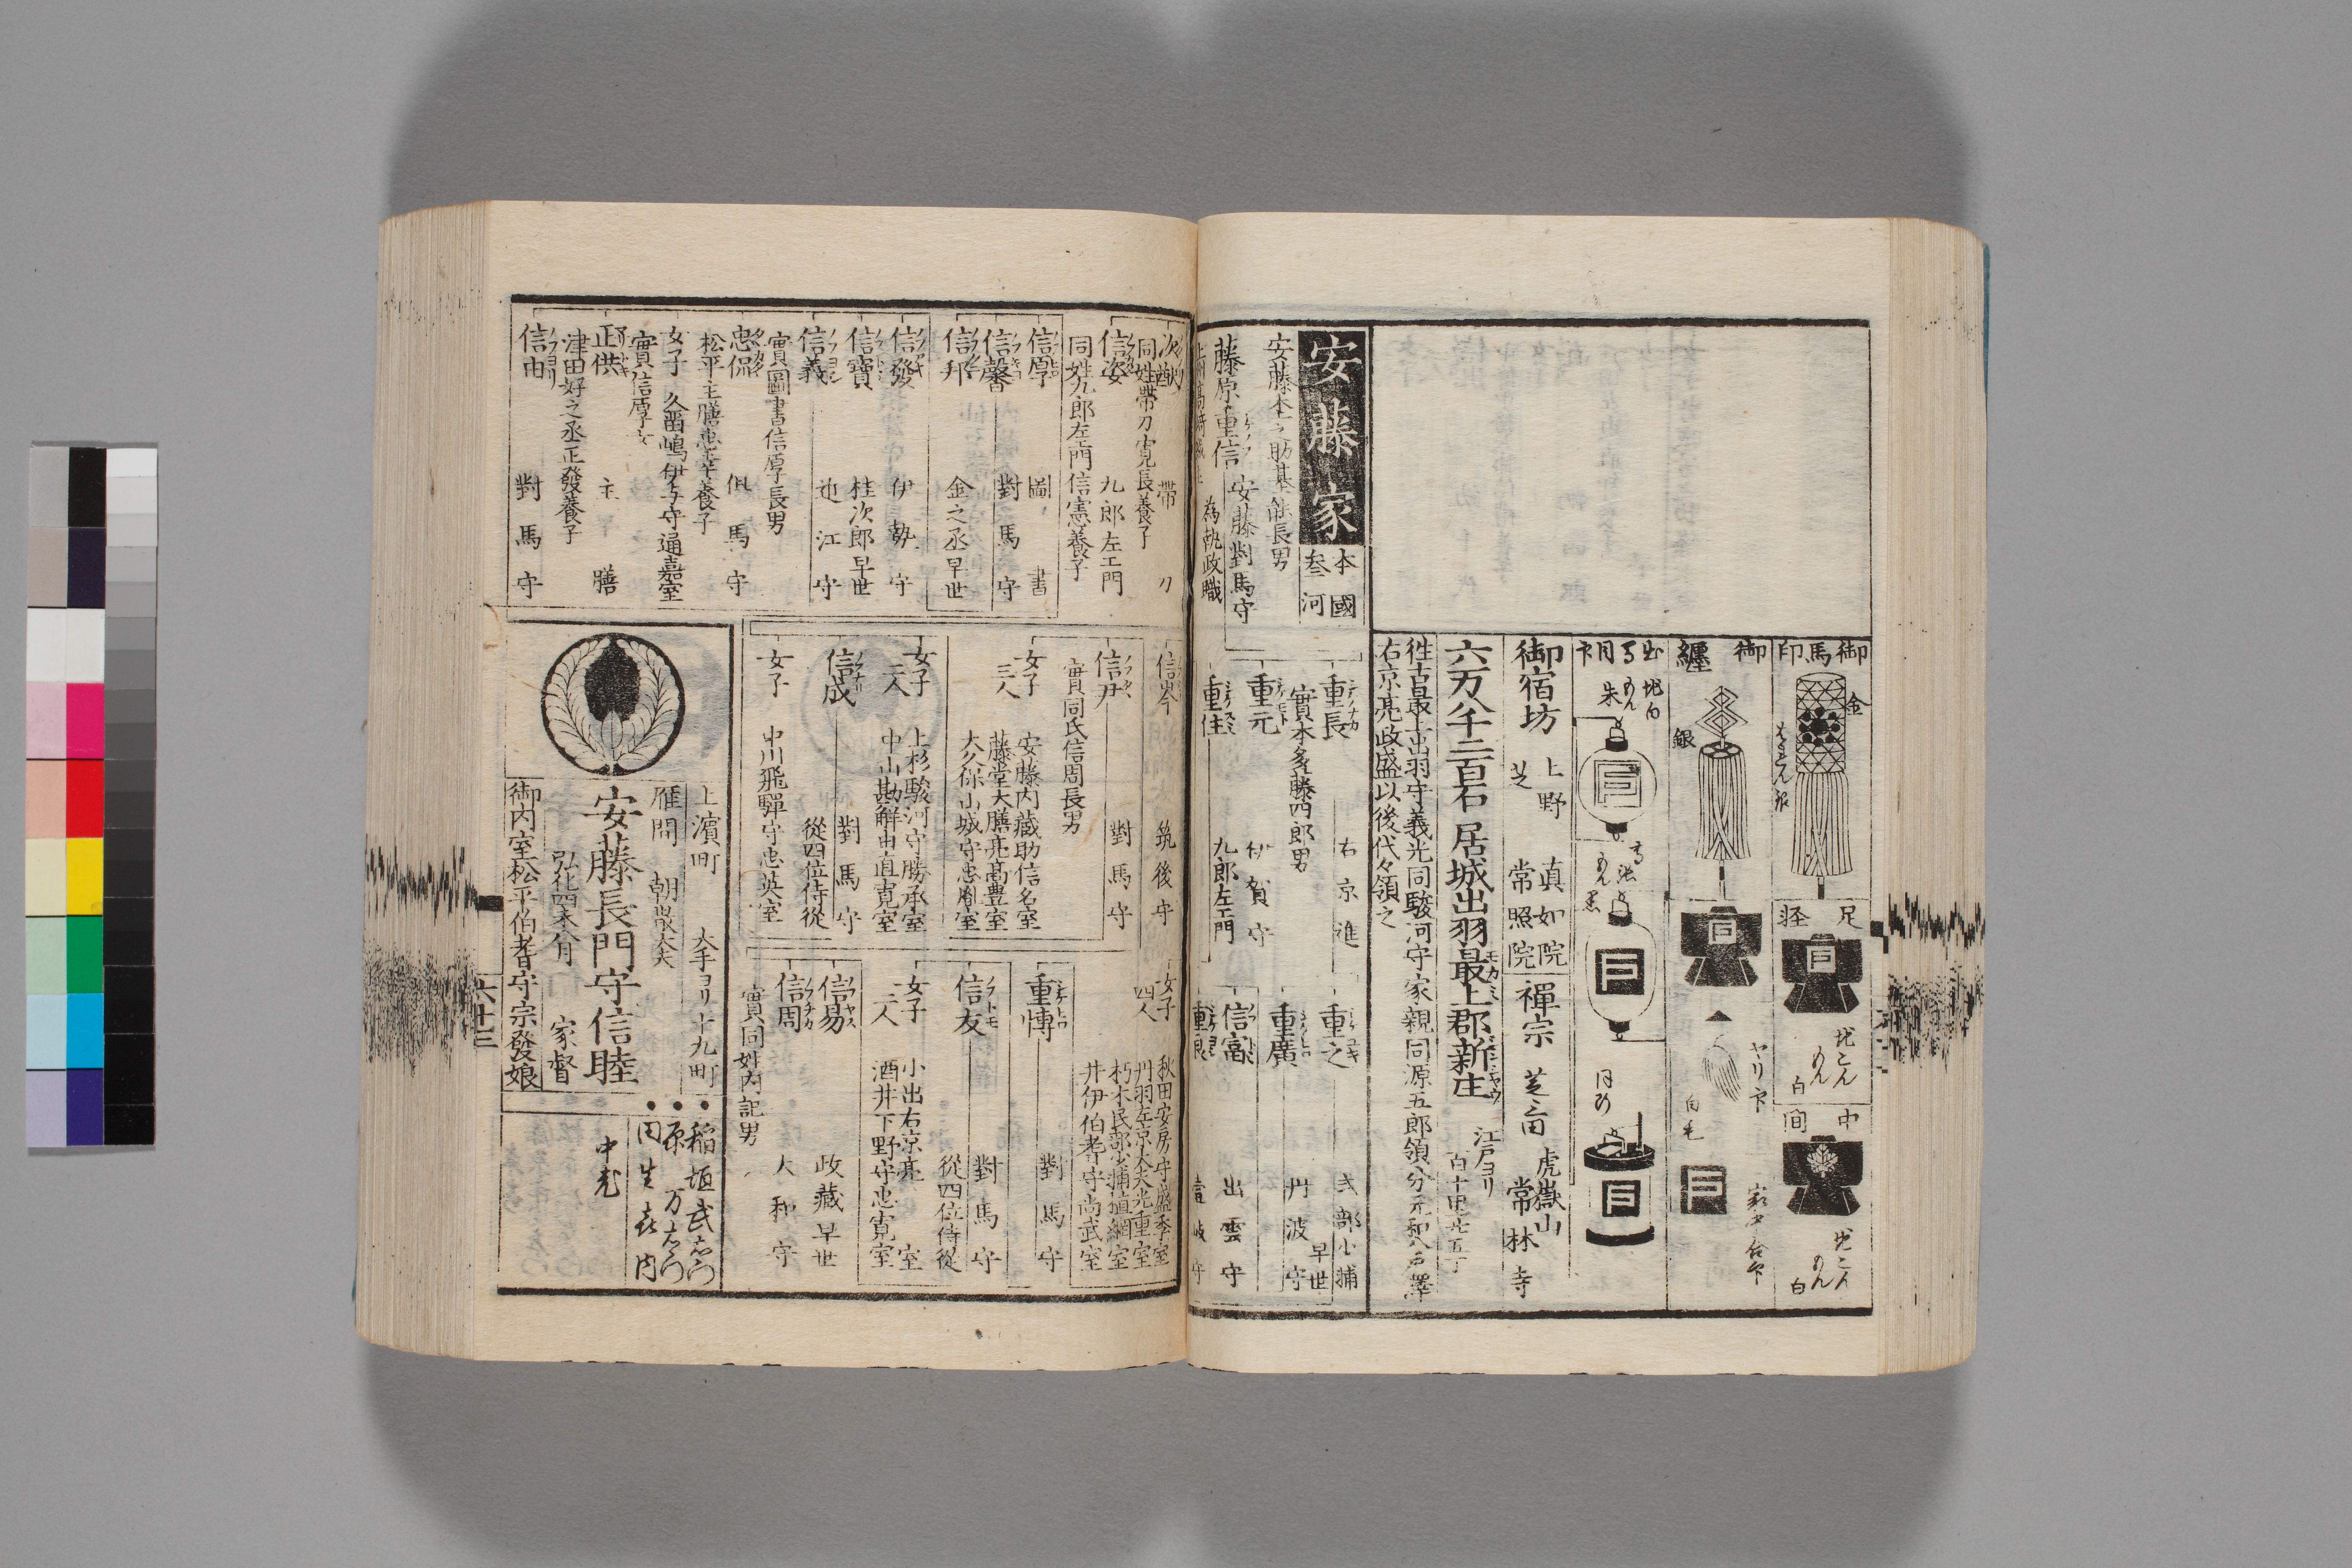 御馬印
金
足軽
地こん
もん
白
中間
地こん
もん
白
御纏
銀
白毛
朱
同
御宿坊
上野
真如院
常照院
芝
禅宗
芝三田
虎嶽山
常林寺
六万八千二百石
居城出羽最上郡新庄
江戸ヨリ
百十里廿五丁
徃古最上出羽守義光同駿河守家親同源五郎領分元和八戸澤
右京亮政盛以後代々領之
安藤家
本國
参河
安藤杢之助基能長男
藤原重信
安藤對馬守
為執政職
重長
右京進
實本多藤四郎男
重元
伊賀守
九郎左エ門
重之
式部少輔
早世
重廣
丹波守
信富
出雲守
帯刀
同姓帯刀寛長養子
信姿
九郎左エ門
同姓九郎左エ門信憲養子
信厚
圖書
信馨
對馬守
信邦
金之丞早世
信發
伊勢守
信寶
桂次郎早世
信義
近江守
實圖書信厚長男
忠侃
但馬守
女子
久留嶋伊与守通嘉室
實信厚女
正供
主膳
津田好之丞正發養子
信由
對馬守
筑後守
信尹
對馬守
實同氏信周長男
女子三人
安藤内藏助信名室
藤堂大膳亮高豊室
大久保山城守忠胤室
女子二人
上杉駿河守勝承室
中山勘解由直寛室
信成
對馬守
從四位侍從
女子
中川飛驒守忠英室
女子四人
秋田安房守盛季室
丹羽左京大夫光重室
朽木民部少輔植綱室
井伊伯耆守尚武室
重博
對馬守
信友
對馬守
從四位侍從
女子二人
小出右京亮室
酒井下野守忠寛室
信易
政藏早世
信周
大和守
實同姓内記男
上濱町
大手ヨリ十九町
雁間
朝散大夫
安藤長門守信睦
家督
御内室松平伯耆守宗發娘
稲垣武右衛門
六十三